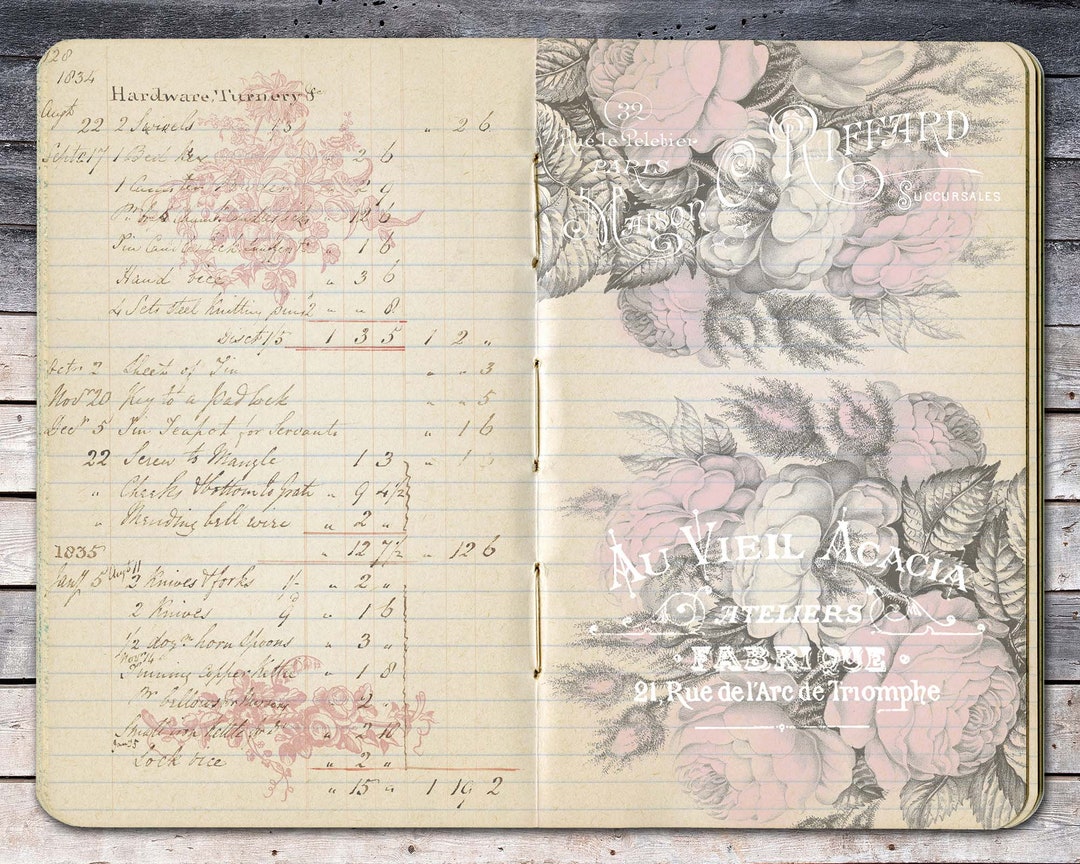 128
1834
Hardware, Turnery &c
Augt 22 2 Swivels 13 " 2 6
Septr 17 1 Bed key " 2 6
1 " 2 9
" 12 6
" 1 6
Hand vice " 3 6
4 Sets Steel Knitting pins 2 " " 8
Disct 1/5 1 3 5 1 2 "
Octr 2 Sheet of Tin " " 3
Novr 20 Key to a Pad lock " " 5
Decr 5 Tin Teapot for Servants " 1 6
22 Screw to Mangle 1 3 " 1 3
" Cheeks & bottom to grate " 9 4½
" Mending bell wire " 2 "
1835 " 12 7½ " 12 6
Jany 5 Augt 11 2 Knives & forks 1/- " 2 "
2 Knives 9d " 1 6
½ dozn horn Spoons " 3 "
Novr 14
Tinning Copper Kettle " 1 8
pr bellows for Nursery 2 "
Small iron kettle " 2 10
Lock vice " 2 "
" 15 " 1 19 2
39
Rue le Peletier
PARIS
MAISON C. RIFFARD
SUCCURSALES
AU VIEIL ACACIA
ATELIERS
· FABRIQUE ·
21, Rue de l'Arc de Triomphe